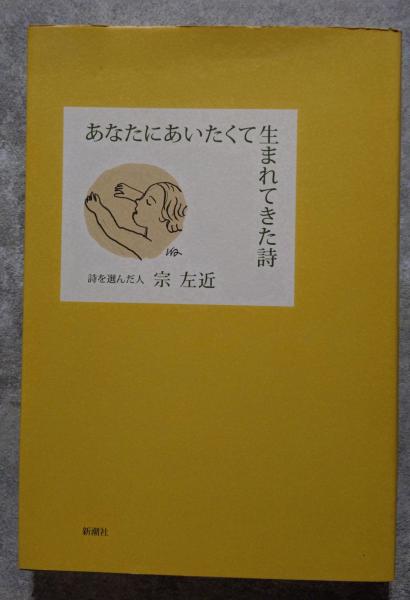 あなたにあいたくて生まれてきた詩
詩を選んだ人 宗 左近
新潮社